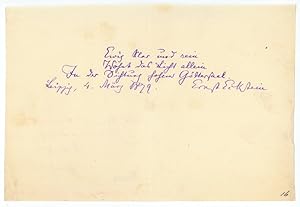 Ewig klar und rein
Wohnt das Licht allein
In der Dichtung hohem Göttersaal.
Leipzig, 4. März 1879. Ernst Eckstein
16